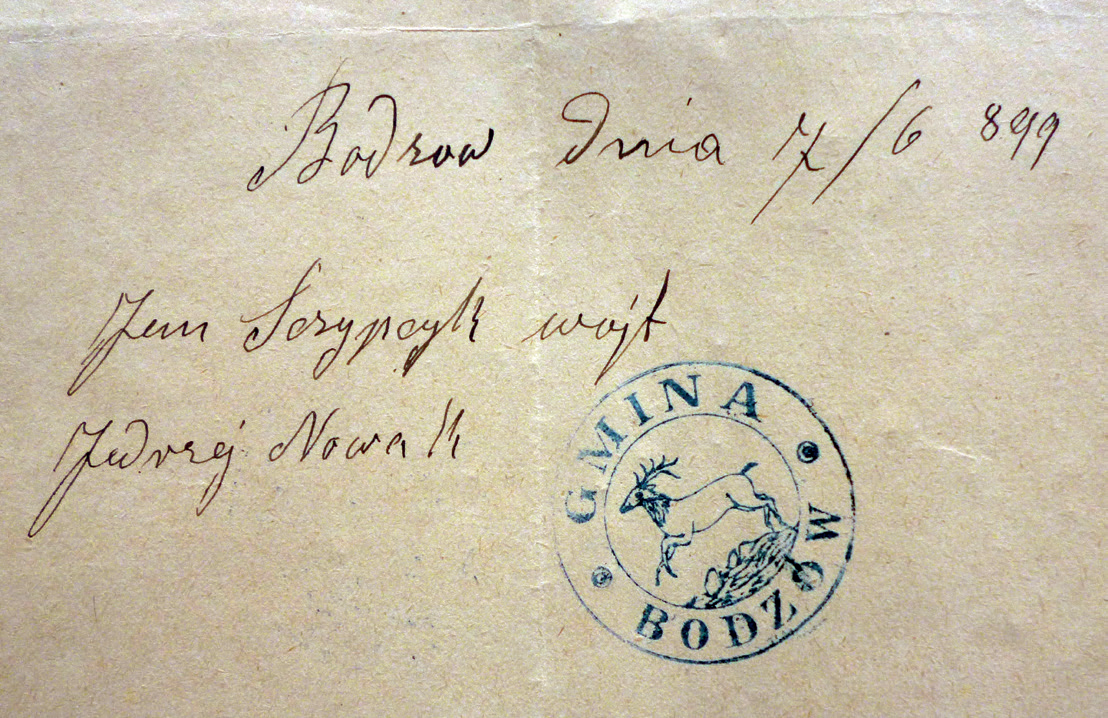 Bodzow dnia 7/6 899
Jan Sczypczyk wójt
Jędrzéj Nowak
GMINA
BODZÓW